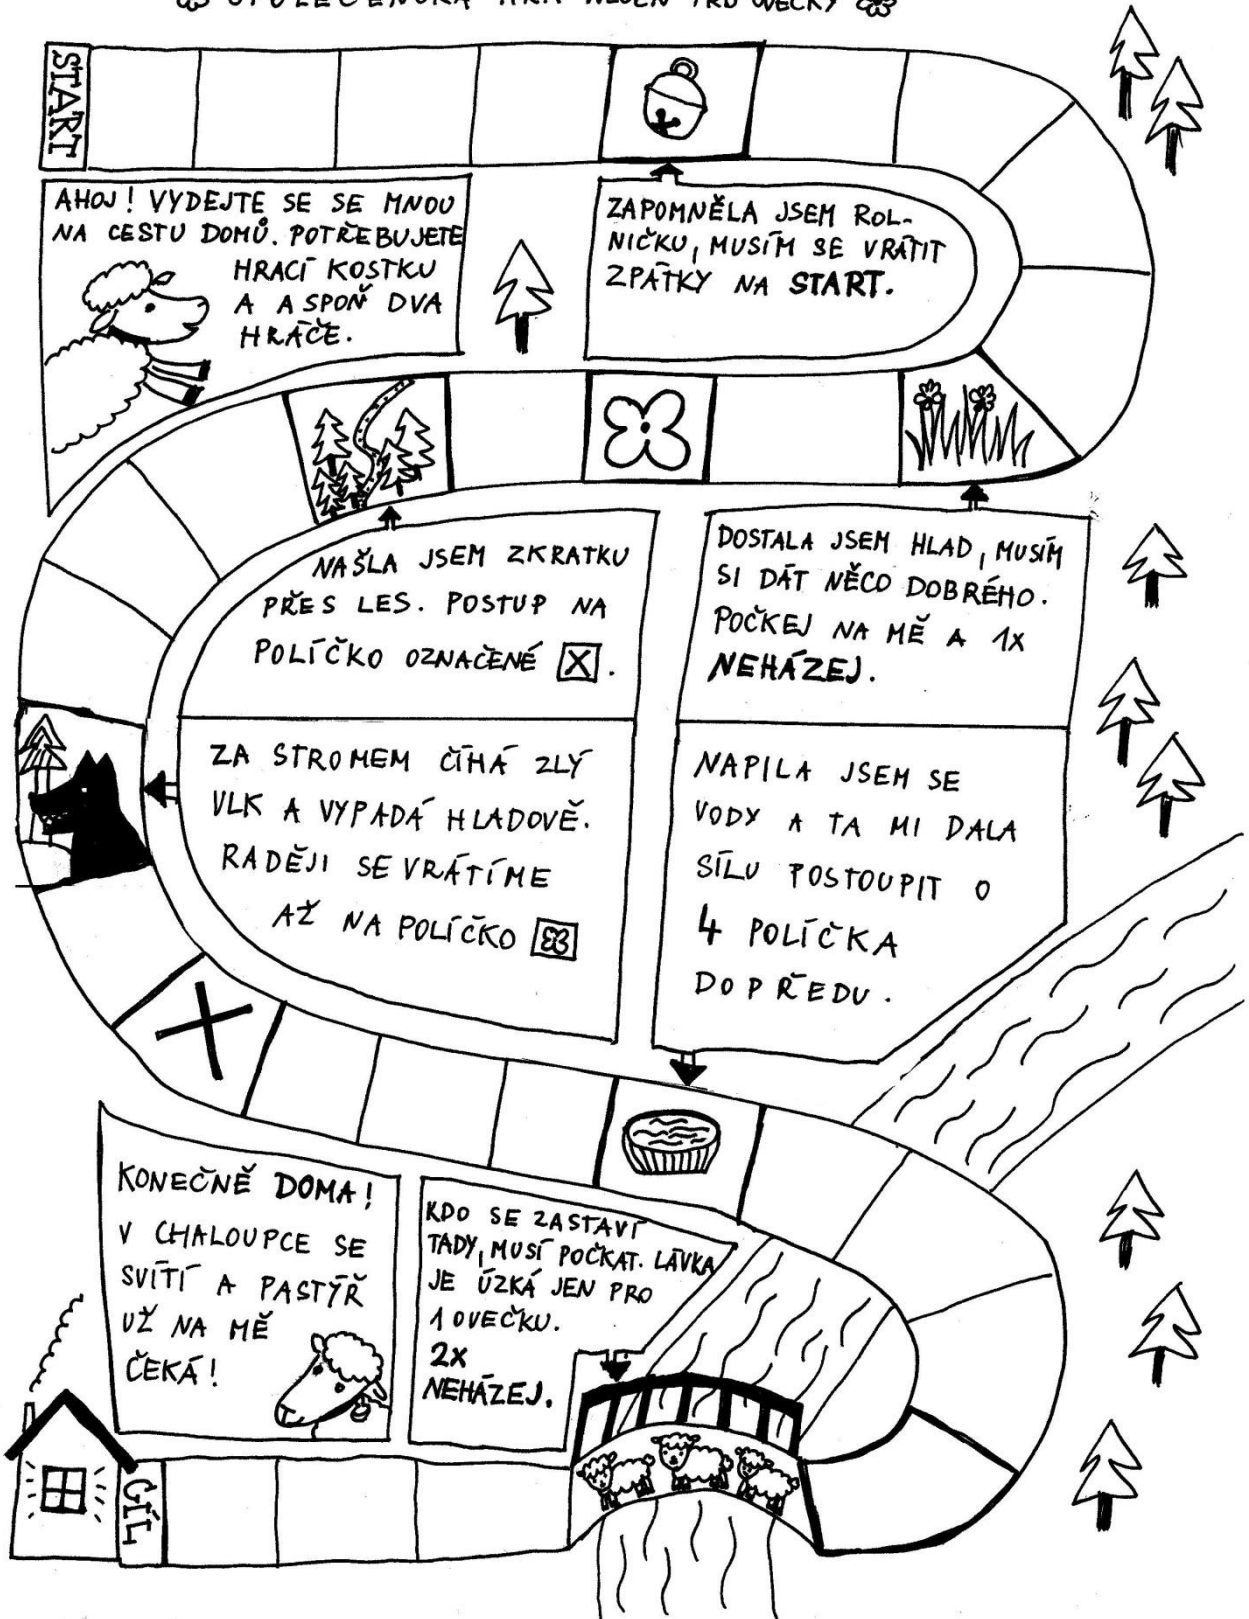 SPOLEČENSKÁ HRA NEJEN PRO OVEČKY
START
AHOJ! VYDEJTE SE SE MNOU
NA CESTU DOMŮ. POTŘEBUJETE
HRACÍ KOSTKU
A ASPOŇ DVA
HRÁČE.
ZAPOMNĚLA JSEM ROL-
NIČKU, MUSÍM SE VRÁTIT
ZPÁTKY NA START.
NAŠLA JSEM ZKRATKU
PŘES LES. POSTUP NA
POLÍČKO OZNAČENÉ X.
DOSTALA JSEM HLAD, MUSÍM
SI DÁT NĚCO DOBRÉHO.
POČKEJ NA MĚ A 1X
NEHÁZEJ.
ZA STROMEM ČÍHÁ ZLÝ
VLK A VYPADÁ HLADOVĚ.
RADĚJI SE VRÁTÍME
AŽ NA POLÍČKO
NAPILA JSEM SE
VODY A TA MI DALA
SÍLU POSTOUPIT O
4 POLÍČKA
DOPŘEDU.
X
KONEČNĚ DOMA!
V CHALOUPCE SE
SVÍTÍ A PASTÝŘ
UŽ NA MĚ
ČEKÁ!
KDO SE ZASTAVÍ
TADY, MUSÍ POČKAT. LÁVKA
JE ÚZKÁ JEN PRO
1 OVEČKU.
2X
NEHÁZEJ.
CÍL